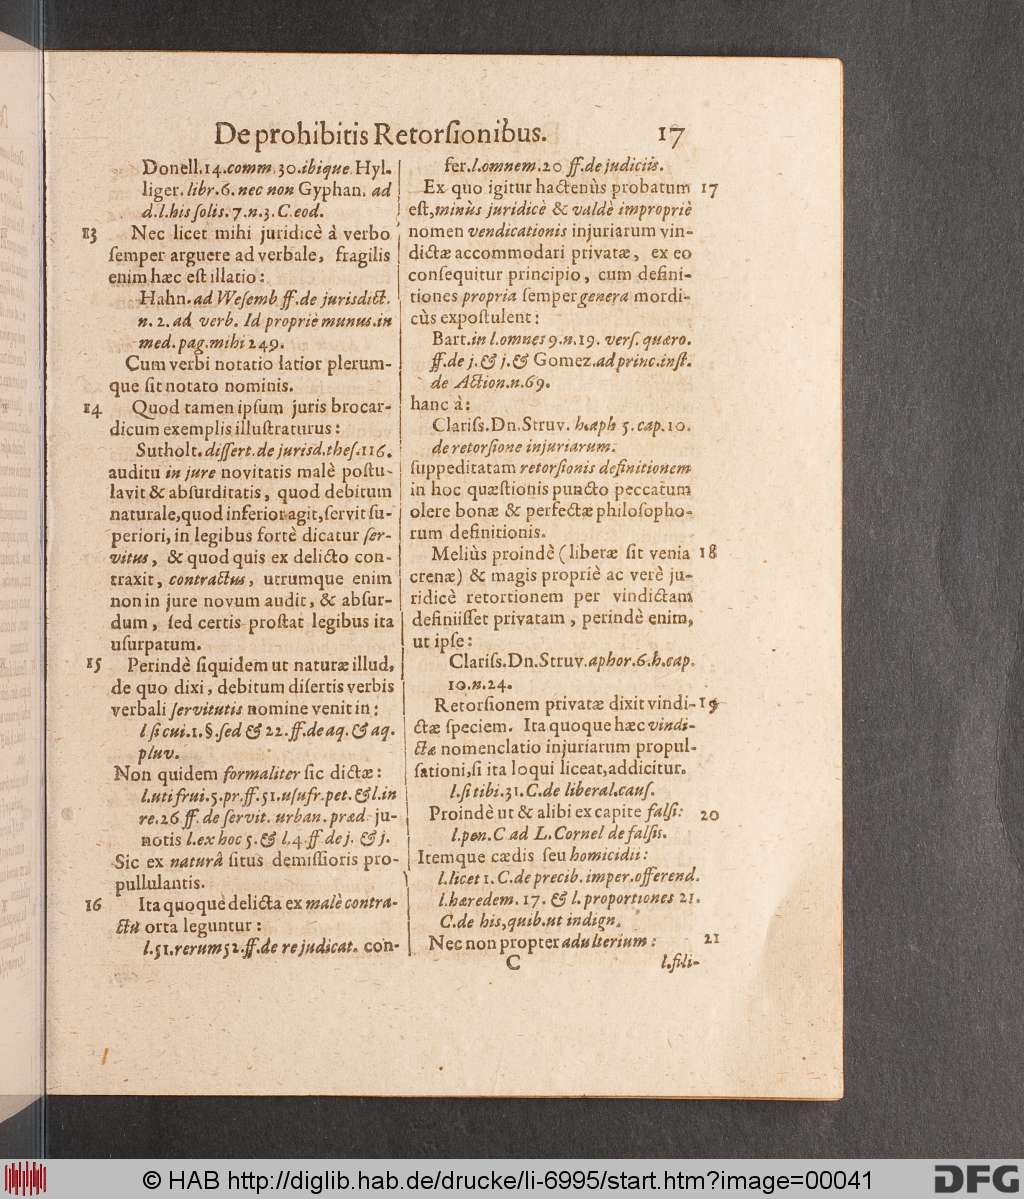 De prohibitis Retorſionibus. 17
Donell. 14. comm. 30. ibique Hyl-
liger. libr. 6. nec non Gyphan. ad
d. l. his ſolis. 7. n. 3. C. eod.
13 Nec licet mihi juridicè à verbo
ſemper arguere ad verbale, fragilis
enim hæc eſt illatio:
Hahn. ad Weſemb ff. de jurisdict.
n. 2. ad verb. Id propriè munus. in
med. pag. mihi 249.
Cum verbi notatio latior plerum-
que ſit notato nominis.
14 Quod tamen ipſum juris brocar-
dicum exemplis illuſtraturus:
Sutholt. diſſert. de jurisd. theſ. 116.
auditu in jure novitatis malè poſtu-
lavit & abſurditatis, quod debitum
naturale, quod inferior agit, ſervit ſu-
periori, in legibus fortè dicatur ſer-
vitus, & quod quis ex delicto con-
traxit, contractus, utrumque enim
non in jure novum audit, & abſur-
dum, ſed certis proſtat legibus ita
uſurpatum.
15 Perindè ſiquidem ut naturæ illud,
de quo dixi, debitum diſertis verbis
verbali ſervitutis nomine venit in:
l. ſi cui. 1. §. ſed & 22. ff. de aq. & aq.
pluv.
Non quidem formaliter ſic dictæ:
l. uti frui. 5. pr. ff. 51. uſufr. pet. & l. in
re. 26 ff. de ſervit. urban. præd. ju-
notis l. ex hoc 5. & l. 4. ff de j. & j.
Sic ex naturâ ſitus demiſſioris pro-
pullulantis.
16 Ita quoque delicta ex malè contra-
ctu orta leguntur:
l. 51. rerum 52. ff. de re judicat. con-
fer. l. omnem. 20 ff. de judiciis.
Ex quo igitur hactenùs probatum 17
eſt, minùs juridicè & valdè impropriè
nomen vendicationis injuriarum vin-
dictæ accommodari privatæ, ex eo
conſequitur principio, cum defini-
tiones propria ſemper genera mordi-
cùs expoſtulent:
Bart. in l. omnes 9. n. 19. verſ. quæro.
ff. de j. & j. & Gomez. ad princ. inſt.
de Action. n. 69.
hanc à:
Clariſs. Dn. Struv. h. aph 5. cap. 10.
de retorſione injuriarum.
ſuppeditatam retorſionis definitionem
in hoc quæſtionis puncto peccatum
olere bonæ & perfectæ philoſopho-
rum definitionis.
Meliùs proindè (liberæ ſit venia 18
crenæ) & magis propriè ac verè ju-
ridicè retortionem per vindictam
definiiſſet privatam, perindè enim,
ut ipſe:
Clariſs. Dn. Struv. aphor. 6. h. cap.
10. n. 24.
Retorſionem privatæ dixit vindi- 19
ctæ ſpeciem. Ita quoque hæc vindi-
ctæ nomenclatio injuriarum propul-
ſationi, ſi ita loqui liceat, addicitur.
l. ſi tibi. 31. C. de liberal. cauſ.
Proindè ut & alibi ex capite falſi: 20
l. pen. C ad L. Cornel de falſis.
Itemque cædis ſeu homicidii:
l. licet 1. C. de precib. imper. offerend.
l. hæredem. 17. & l. proportiones 21.
C. de his, quib. ut indign.
Nec non propter adulterium: 21
C l. fili-
© HAB http://diglib.hab.de/drucke/li-6995/start.htm?image=00041
DFG